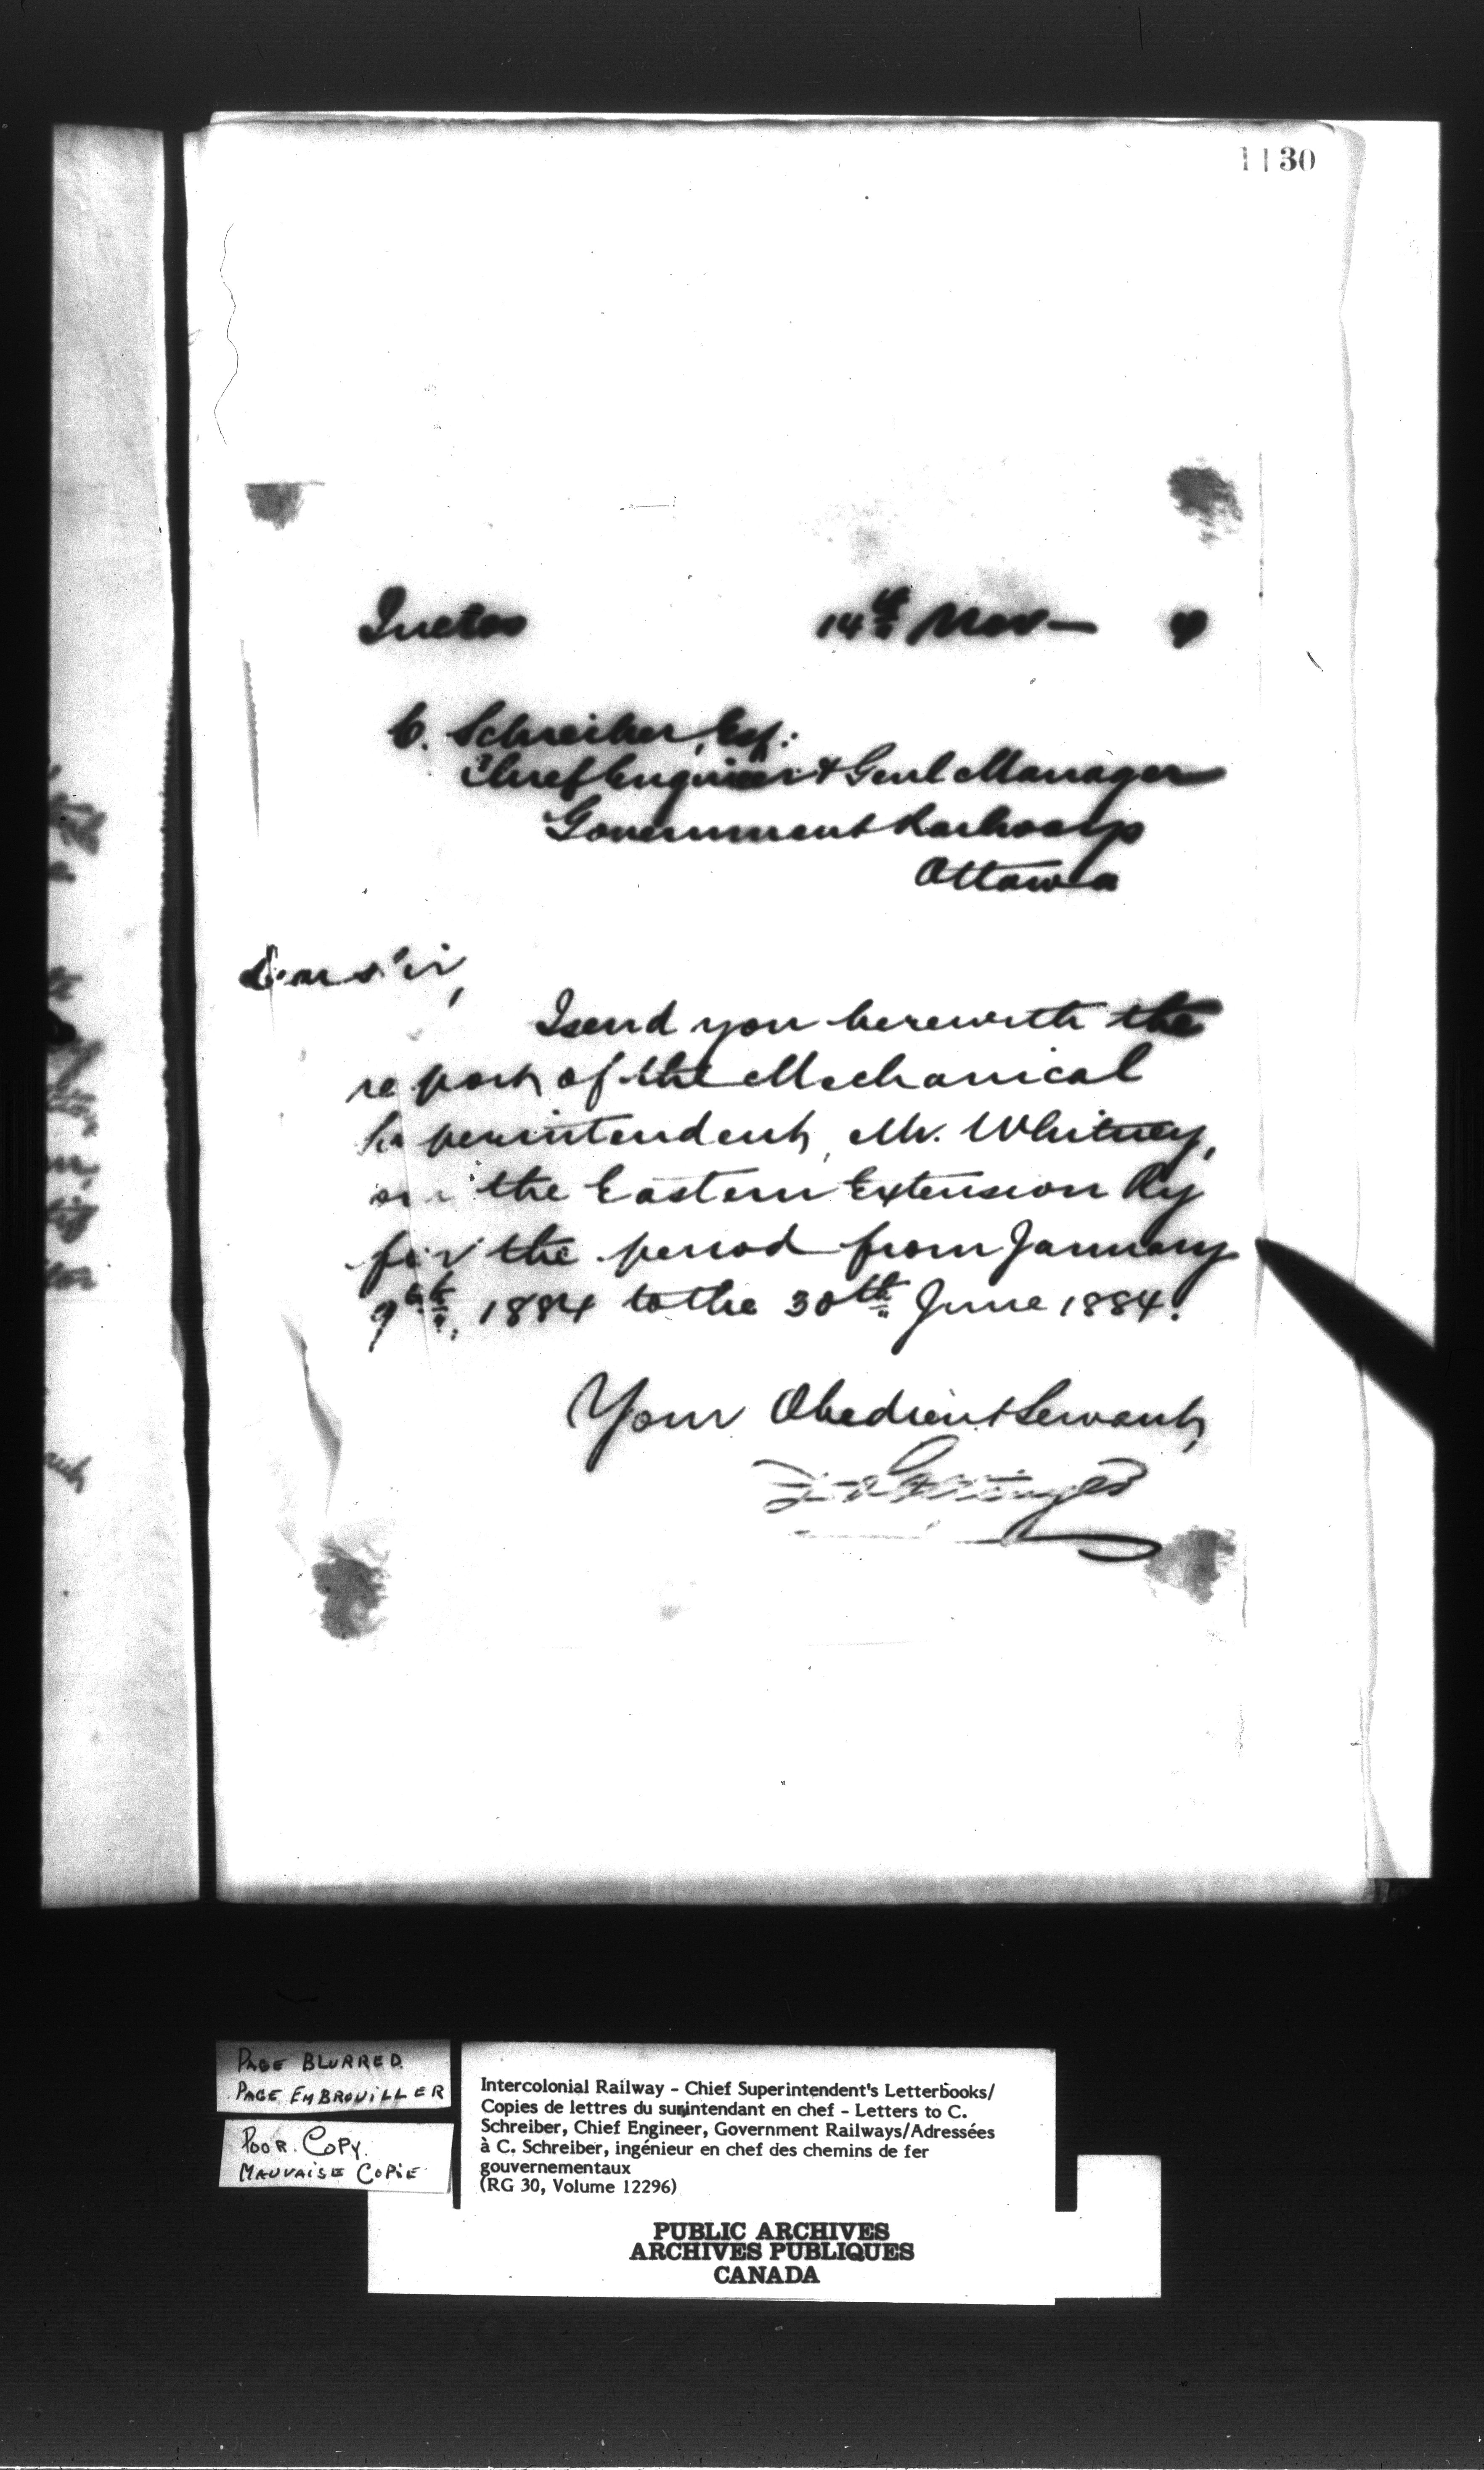 1130
14th Nov— 4
C. Schreiber, Esq:
Chief Engineer & Genl Manager
Government Railways
Ottawa
Dear Sir,
I send you herewith the
report of the Mechanical
Superintendent, Mr. Whitney,
on the Eastern Extension Ry
for the period from January
9th, 1884 to the 30th June 1884.
Your Obedient Servant,
D Pottinger
PAGE BLURRED
PAGE EMBROUILLER
POOR COPY.
MAUVAISE COPIE
Intercolonial Railway - Chief Superintendent's Letterbooks/
Copies de lettres du surintendant en chef - Letters to C.
Schreiber, Chief Engineer, Government Railways/Adressées
à C. Schreiber, ingénieur en chef des chemins de fer
gouvernementaux
(RG 30, Volume 12296)
PUBLIC ARCHIVES
ARCHIVES PUBLIQUES
CANADA